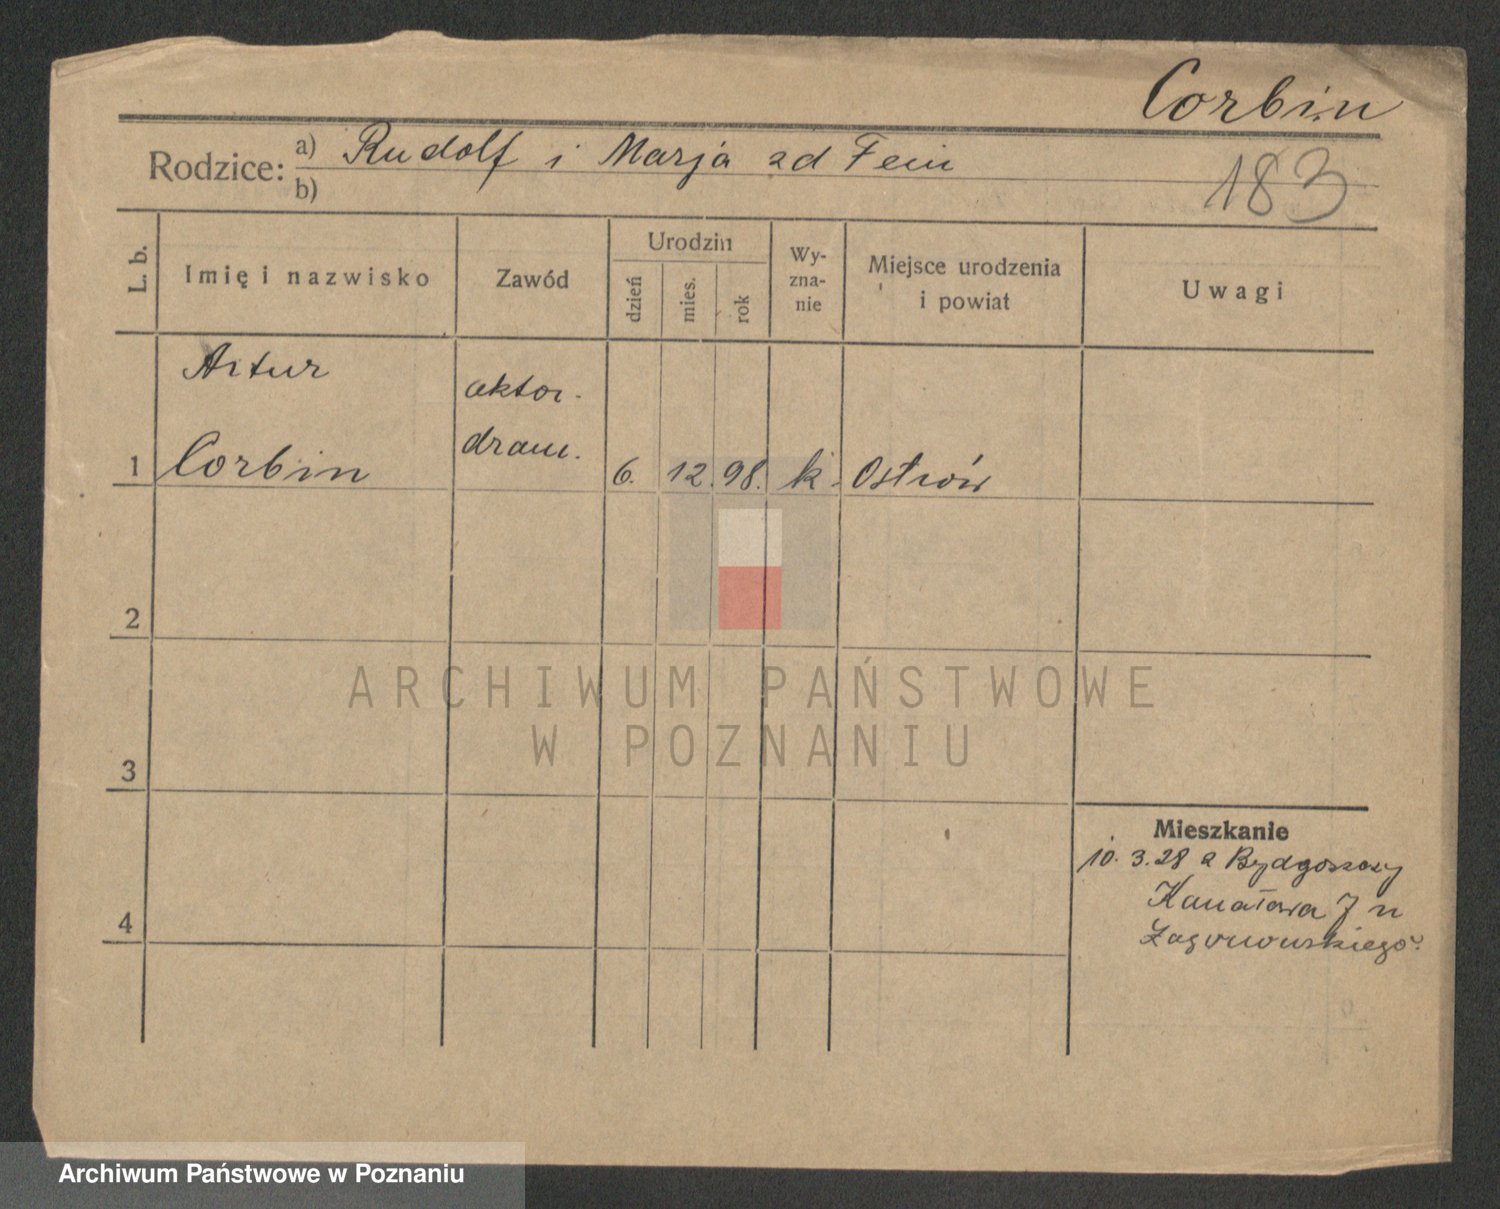 Corbin
Rodzice: a) Rudolf i Marja zd Fein
b)
183
L. b.
Imię i nazwisko
Zawód
Urodzin
dzień
mies.
rok
Wy-
zna-
nie
Miejsce urodzenia
i powiat
Uwagi
Artur
aktor.
dram.
1 Corbin 6. 12. 98. k. Ostrów
2
3
4
Mieszkanie
10. 3. 28 z Bydgoszczy
Kanałowa 7 u
ARCHIWUM PAŃSTWOWE
W POZNANIU
Archiwum Państwowe w Poznaniu